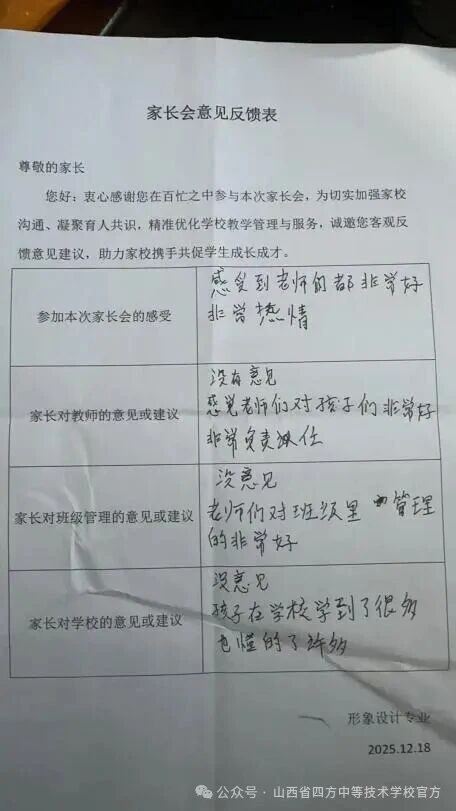 家长会意见反馈表
尊敬的家长
您好：衷心感谢您在百忙之中参与本次家长会，为切实加强家校
沟通、凝聚育人共识，精准优化学校教学管理与服务，诚邀您客观反
馈意见建议，助力家校携手共促学生成长成才。
参加本次家长会的感受
感受到老师们都非常好
非常热情
家长对教师的意见或建议
没有意见
感觉老师们对孩子们非常好
非常负责任
家长对班级管理的意见或建议
没意见
老师们对班级里管理
的非常好
家长对学校的意见或建议
没意见
孩子在学校学到了很多
也懂的了许多
形象设计专业
2025.12.18
公众号·山西省四方中等技术学校官方